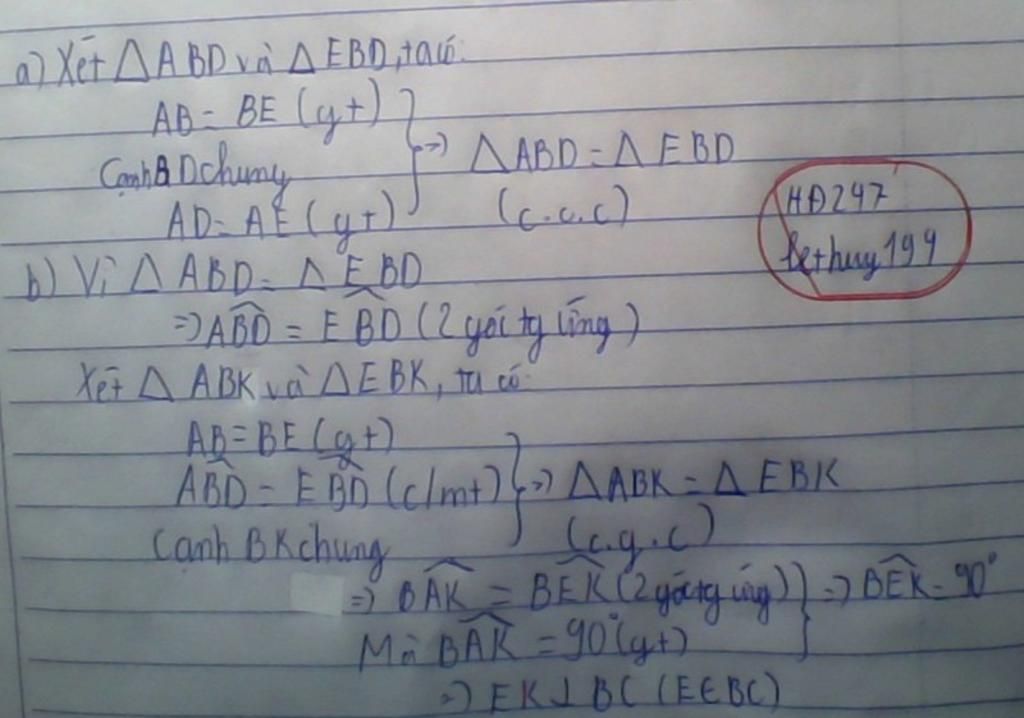 a) Xét △ABD và △EBD, ta có:
AB = BE (gt)
Cạnh BD chung
AD = AE (gt)
=> △ABD = △EBD
(c.c.c)
HĐ247
lethuy199
b) Vì △ABD = △EBD
=> ABD = EBD (2 góc tg ứng)
Xét △ABK và △EBK, ta có:
AB = BE (gt)
ABD = EBD (c/mt)
Cạnh BK chung
=> △ABK = △EBK
(c.g.c)
=> BAK = BEK (2 góc tg ứng)
Mà BAK = 90° (gt)
=> BEK = 90°
=> EK ⊥ BC (E∈BC)